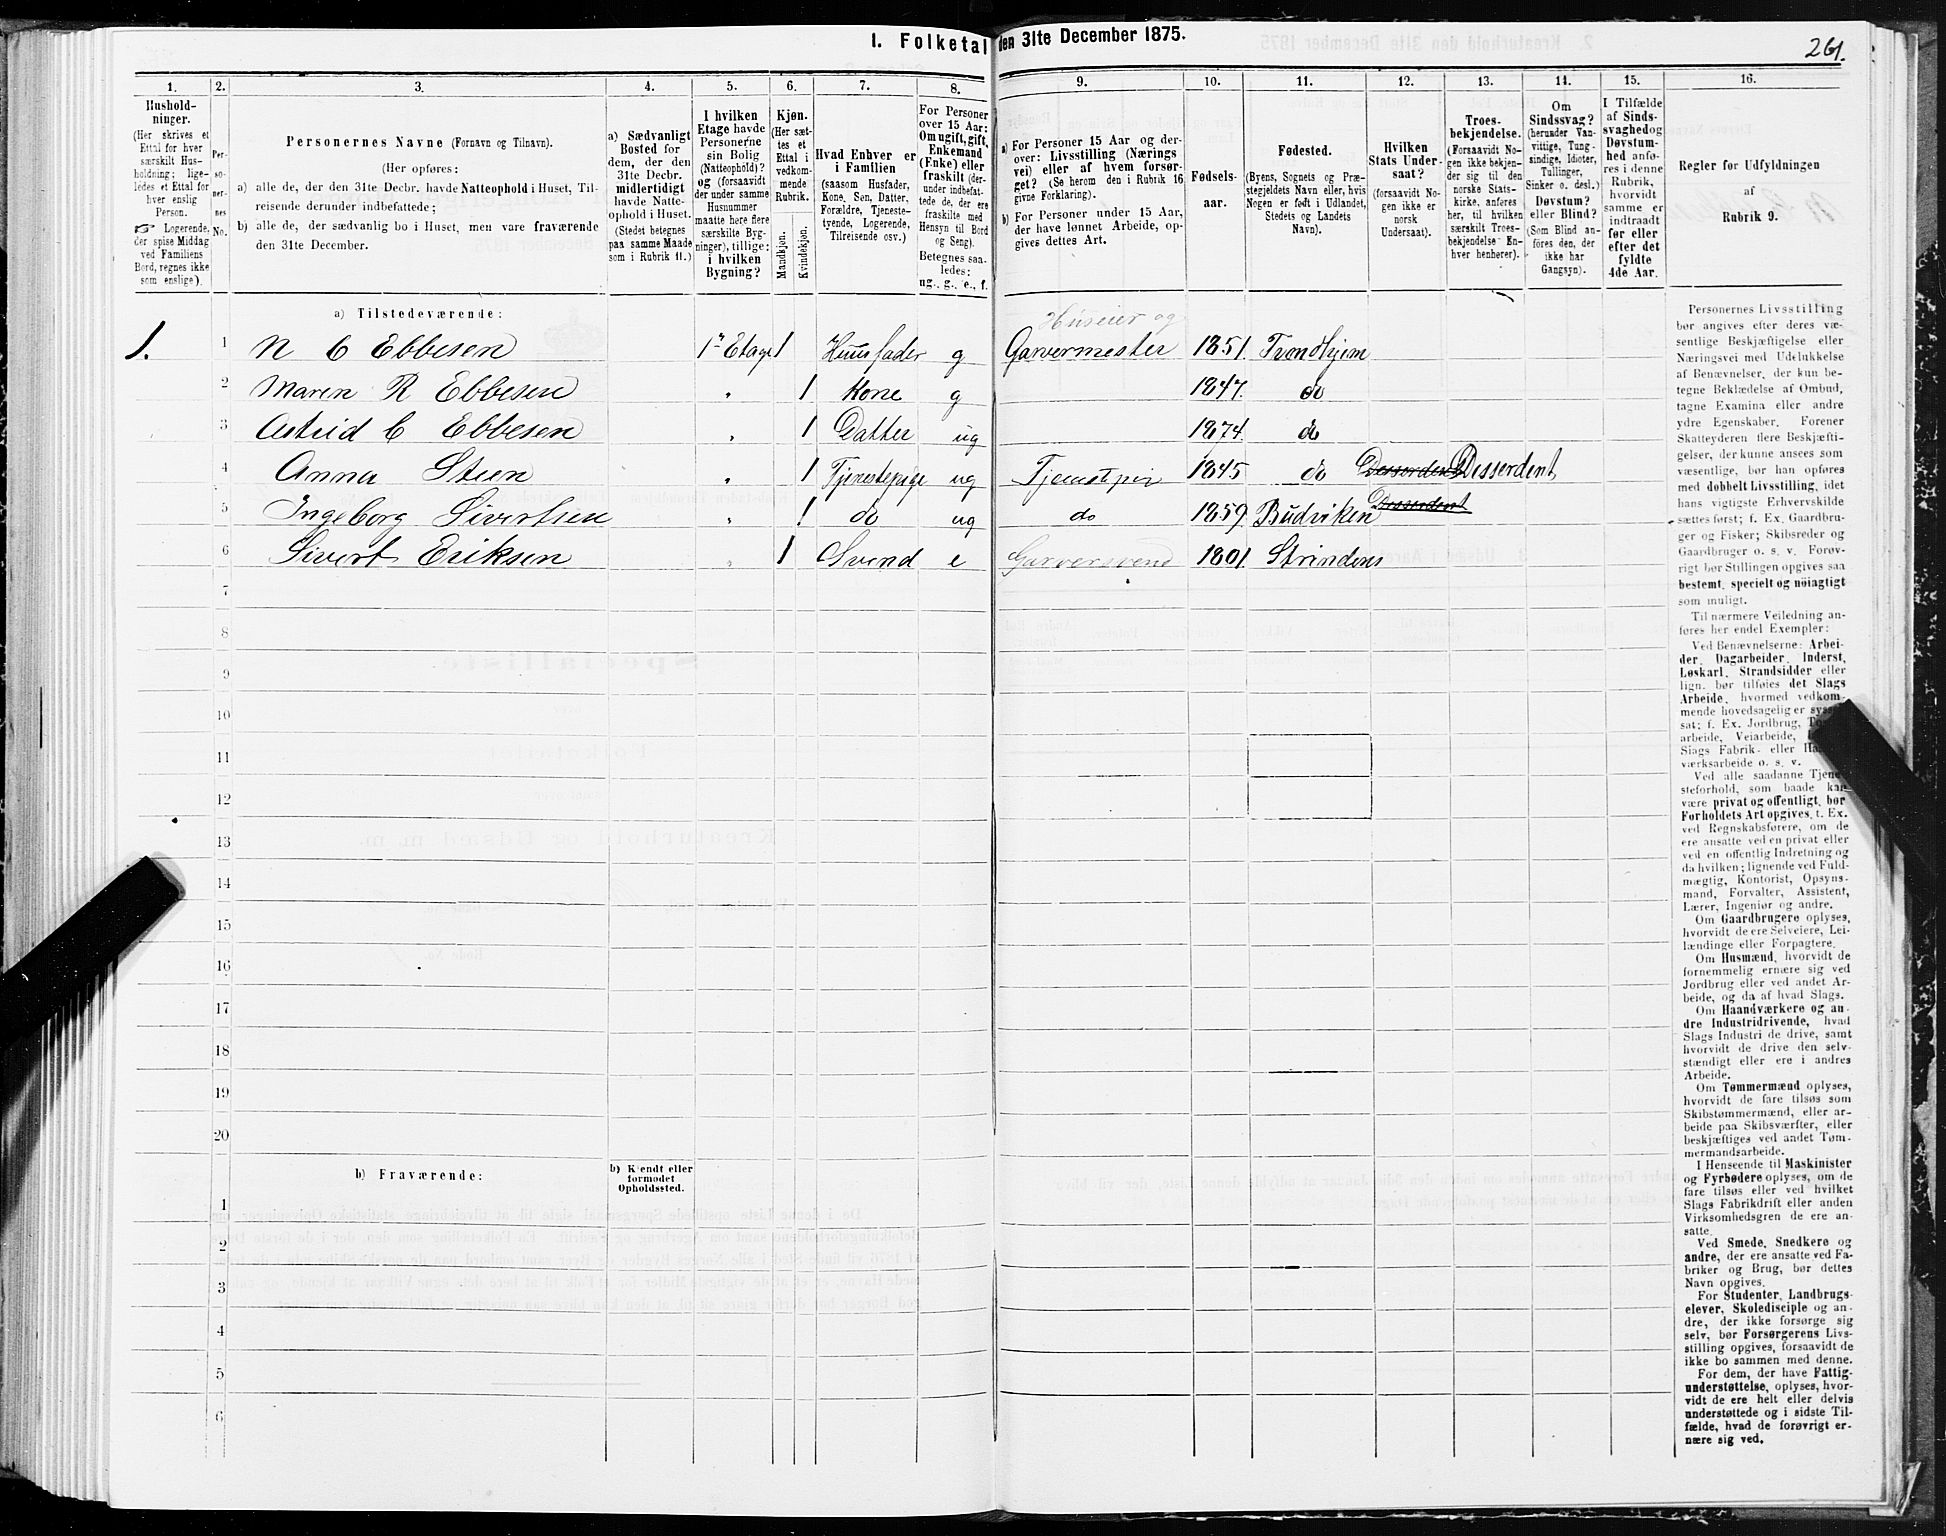 1. Folketal den 31te December 1875.
261.
1. 2. 3. 4. 5. 6. 7. 8. 9. 10. 11. 12. 13. 14. 15. 16.
Hushold-
ninger.
(Her skrives et
Ettal for hver
særskilt Hus-
holdning; lige-
ledes et Ettal for
hver enslig
Person.
☞ Logerende,
der spise Middag
ved Familiens
Bord, regnes ikke
som enslige).
Per-
so-
ner-
nes
No.
Personernes Navne (Fornavn og Tilnavn).
(Her opføres:
a) alle de, der den 31te Decbr. havde Natteophold i Huset, Til-
reisende derunder indbefattede;
b) alle de, der sædvanlig bo i Huset, men vare fraværende
den 31te December.
a) Sædvanligt
Bosted for
dem, der den
31te Decbr.
midlertidigt
havde Natte-
ophold i Huset.
(Stedet betegnes
paa samme Maade
som i Rubrik 11.)
I hvilken
Etage havde
Personerne
sin Bolig
(Natteophold)?
og (forsaavidt
der under samme
Husnummer
maatte høre flere
særskilte Byg-
ninger), tillige:
i hvilken
Bygning?
Kjøn.
(Her sæt-
tes et
Ettal i
vedkom-
mende
Rubrik.
Mandkjøn.
Kvindekjøn.
Hvad Enhver er
i Familien
(saasom Husfader,
Kone, Søn, Datter,
Forældre, Tjeneste-
tyende, Logerende,
Tilreisende osv.)
For Personer
over 15 Aar:
Om ugift, gift,
Enkemand
(Enke) eller
fraskilt (der-
under indbefat-
tede de, der ere
fraskilte med
Hensyn til Bord
og Seng).
Betegnes saa-
ledes:
ug., g., e., f.
a) For Personer 15 Aar og der-
over: Livsstilling (Nærings
vei) eller af hvem forsør-
get? (Se herom den i Rubrik 16
givne Forklaring).
b) For Personer under 15 Aar,
der have lønnet Arbeide, op-
gives dettes Art.
Fødsels-
aar.
Fødested.
(Byens, Sognets og Præ-
stegjeldets Navn eller, hvis
Nogen er født i Udlandet,
Stedets og Landets
Navn).
Hvilken
Stats Under-
saat?
(forsaavidt No-
gen ikke er
norsk
Undersaat).
Troes-
bekjendelse.
(Forsaavidt No-
gen ikke bekjen-
der sig til den
norske Stats-
kirke, anføres
her, til hvilken
særskilt Troes-
bekjendelse En-
hver henhører).
Om
Sindssvag?
(herunder Van-
vittige, Tung-
sindige, Idioter,
Tullinger,
Sinker o. desl.)
Døvstum?
eller Blind?
(Som Blind an-
føres den, der
ikke har
Gangsyn).
I Tilfælde
af Sinds-
svaghedog
Døvstum-
hed anfø-
res i denne
Rubrik,
hvorvidt
samme er
indtraadt
før eller
efter det
fyldte
4de Aar.
Regler for Udfyldningen
af
Rubrik 9.
a) Tilstedeværende:
Huseier og
1. 1 N C Ebbesen 1ste Etage 1 Huusfader g Garvermester 1851. Trondhjem
2 Maren R Ebbesen " 1 Kone g 1847. do
3 Astrid C Ebbesen " 1 Datter ug 1874. do
4 Anna Steen " 1 Tjenestepige ug Tjenestepig 1845 do Desserdent Disserdent,
5 Ingeborg Sivertsen " 1 do ug do 1859. Budviken Desserdent
6 Sivert Eriksen " 1 Svend e Garversvend 1801. Strindens
7
8
9
10
11
12
13
14
15
16
17
18
19
20
b) Fraværende:
b) Kjendt eller
formodet
Opholdssted.
1
2
3
4
5
6
Personernes Livsstilling
bør angives efter deres væ-
sentlige Beskjæftigelse eller
Næringsvei med Udelukkelse
af Benævnelser, der kun be-
tegne Beklædelse af Ombud,
tagne Examina eller andre
ydre Egenskaber. Forener
Skatteyderen flere Beskjæfti-
gelser, der kunne ansees som
væsentlige, bør han opføres
med dobbelt Livsstilling, idet
hans vigtigste Erhvervskilde
sættes først; f. Ex. Gaardbru-
ger og Fisker; Skibsreder og
Gaardbruger o. s. v. Forøv-
rigt bør Stillingen opgives saa
bestemt, specielt og nøiagtigt
som muligt.
Til nærmere Veiledning an-
føres her endel Exempler:
Ved Benævnelserne: Arbei-
der, Dagarbeider, Inderst,
Løskarl, Strandsidder eller
lign. bør tilføies det Slags
Arbeide, hvormed vedkom-
mende hovedsagelig er syssel-
sat; f. Ex. Jordbrug,
arbeide, Veiarbeide,
Slags Fabrik- eller
værksarbeide o. s. v.
Ved alle saadanne Tjene-
steforhold, som baade kan
være privat og offentligt, bør
Forholdets Art opgives, t. Ex.
ved Regnskabsførere, om de
ere ansatte ved en privat eller
ved en offentlig Indretning og
da hvilken; lignende ved Fuld-
mægtig, Kontorist, Opsyns-
mand, Forvalter, Assistent,
Lærer, Ingeniør og andre.
Om Gaardbrugere oplyses,
hvorvidt de ere Selveiere, Lei-
lændinge eller Forpagtere.
Om Husmænd, hvorvidt de
fornemmelig ernære sig ved
Jordbrug eller ved andet Ar-
beide, og da af hvad Slags.
Om Haandværkere og an-
dre Industridrivende, hvad
Slags Industri de drive, samt
hvorvidt de drive den selv-
stændigt eller ere i andres
Arbeide.
Om Tømmermænd oplyses,
hvorvidt de fare tilsøs som
Skibstømmermænd, eller ar-
beide paa Skibsværfter, eller
beskjæftiges ved andet Tøm-
mermandsarbeide.
I Henseende til Maskinister
og Fyrbødere oplyses, om de
fare tilsøs eller ved hvilket
Slags Fabrikdrift eller anden
Virksomhedsgren de ere an-
satte.
Ved Smede, Snedkere og
andre, der ere ansatte ved Fa-
briker og Brug, bør dettes
Navn opgives.
For Studenter, Landbrugs-
elever, Skoledisciple og an-
dre, der ikke forsørge sig
selv, bør Forsørgerens Livs-
stilling opgives, forsaavidt de
ikke bo sammen med denne.
For dem, der have Fattig-
understøttelse, oplyses, hvor-
vidt de ere helt eller delvis
understøttede og i sidste Til-
fælde, hvad de forøvrigt er-
nære sig ved.